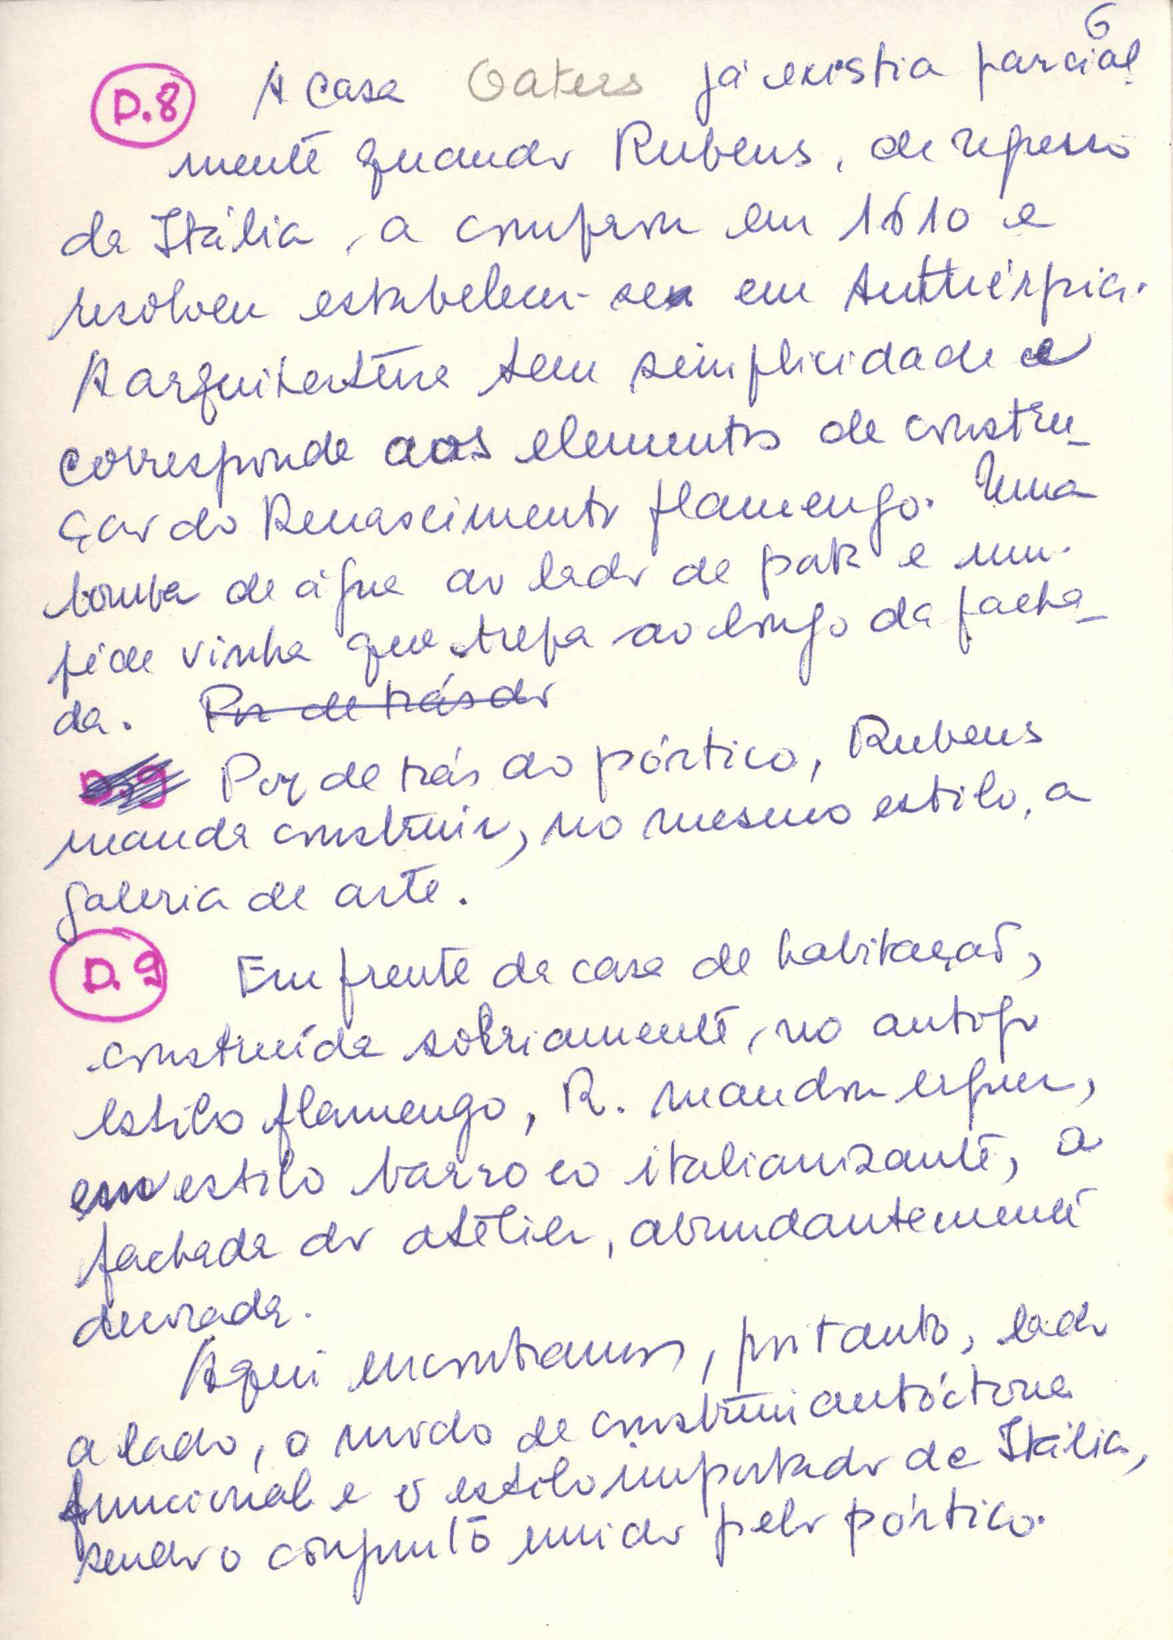 6
D.8 A casa Oaters já existia parcial
mente quando Rubens, de regresso
da Itália, a comprou em 1610 e
resolveu estabelecer-se em Antuérpia.
A arquitectura tem simplicidade e
corresponde aos elementos de constru-
ção do Renascimento flamengo. Uma
bomba de água ao lado de pak e um
pé de vinha que trepa ao longo da facha-
da. Por de trás do
D.9 Por de trás do pórtico, Rubens
manda construir, no mesmo estilo, a
galeria de arte.
D.9 Em frente da casa de habitação,
construída sobriamente, no antigo
estilo flamengo, R. mandou erguer,
em estilo barroco italianizante, a
fachada do atelier, abundantemente
decorada.
Aqui encontramos, portanto, lado
a lado, o modo de construir autóctone
funcional e o estilo importado da Itália,
sendo o conjunto unido pelo pórtico.